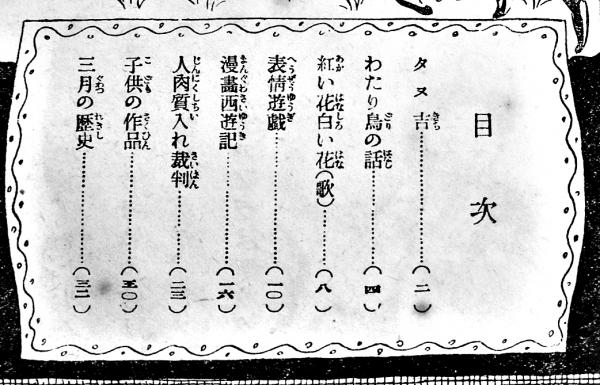 目次
タヌ吉……………(二)
わたり鳥の話……………(四)
紅い花白い花(歌)……(八)
表情遊戯……………(一〇)
漫畫西遊記……………(一六)
人肉質入れ裁判………(二三)
子供の作品……………(三〇)
三月の歴史……………(三二)